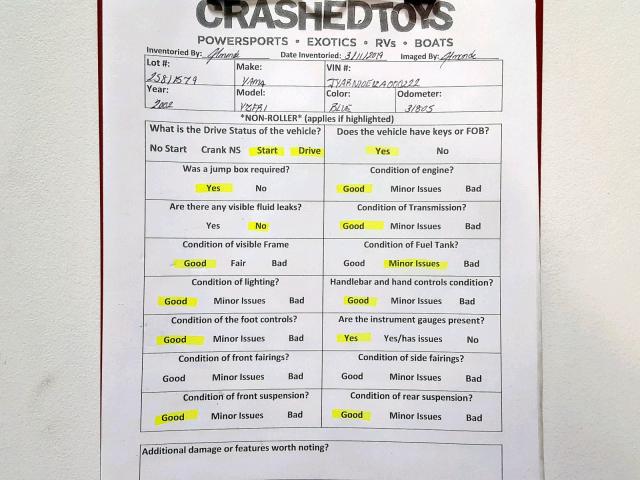 CRASHEDTOYS
POWERSPORTS • EXOTICS • RVs • BOATS
Inventoried By: Almonde Date Inventoried: 3/11/2019 Imaged By: Almonde
Lot #: Make: VIN #:
25811579 YAMA
Year: Model: Color: Odometer:
2002 YZFR1 BLUE 31805
*NON-ROLLER* (applies if highlighted)
What is the Drive Status of the vehicle? Does the vehicle have keys or FOB?
No Start Crank NS Start Drive Yes No
Was a jump box required? Condition of engine?
Yes No Good Minor Issues Bad
Are there any visible fluid leaks? Condition of Transmission?
Yes No Good Minor Issues Bad
Condition of visible Frame Condition of Fuel Tank?
Good Fair Bad Good Minor Issues Bad
Condition of lighting? Handlebar and hand controls condition?
Good Minor Issues Bad Good Minor Issues Bad
Condition of the foot controls? Are the instrument gauges present?
Good Minor Issues Bad Yes Yes/has issues No
Condition of front fairings? Condition of side fairings?
Good Minor Issues Bad Good Minor Issues Bad
Condition of front suspension? Condition of rear suspension?
Good Minor Issues Bad Good Minor Issues Bad
Additional damage or features worth noting?